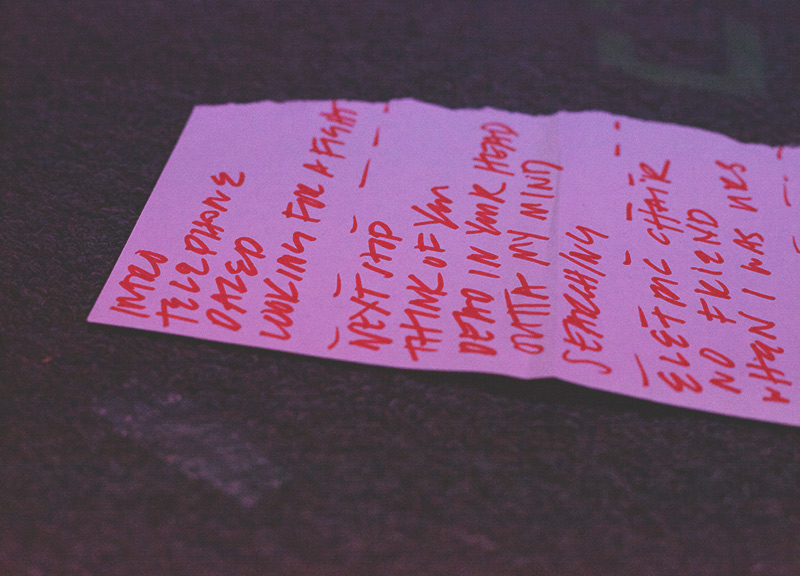 INTRO
TELEPHONE
DAZED
LOOKING FOR A FIGHT
- - - - -
NEXT STOP
THINK OF YOU
DEAD IN YOUR HEAD
OUTTA MY MIND
SEARCHING
- - - - -
ELETRIC CHAIR
NO FRIEND
WHEN I WAS URS